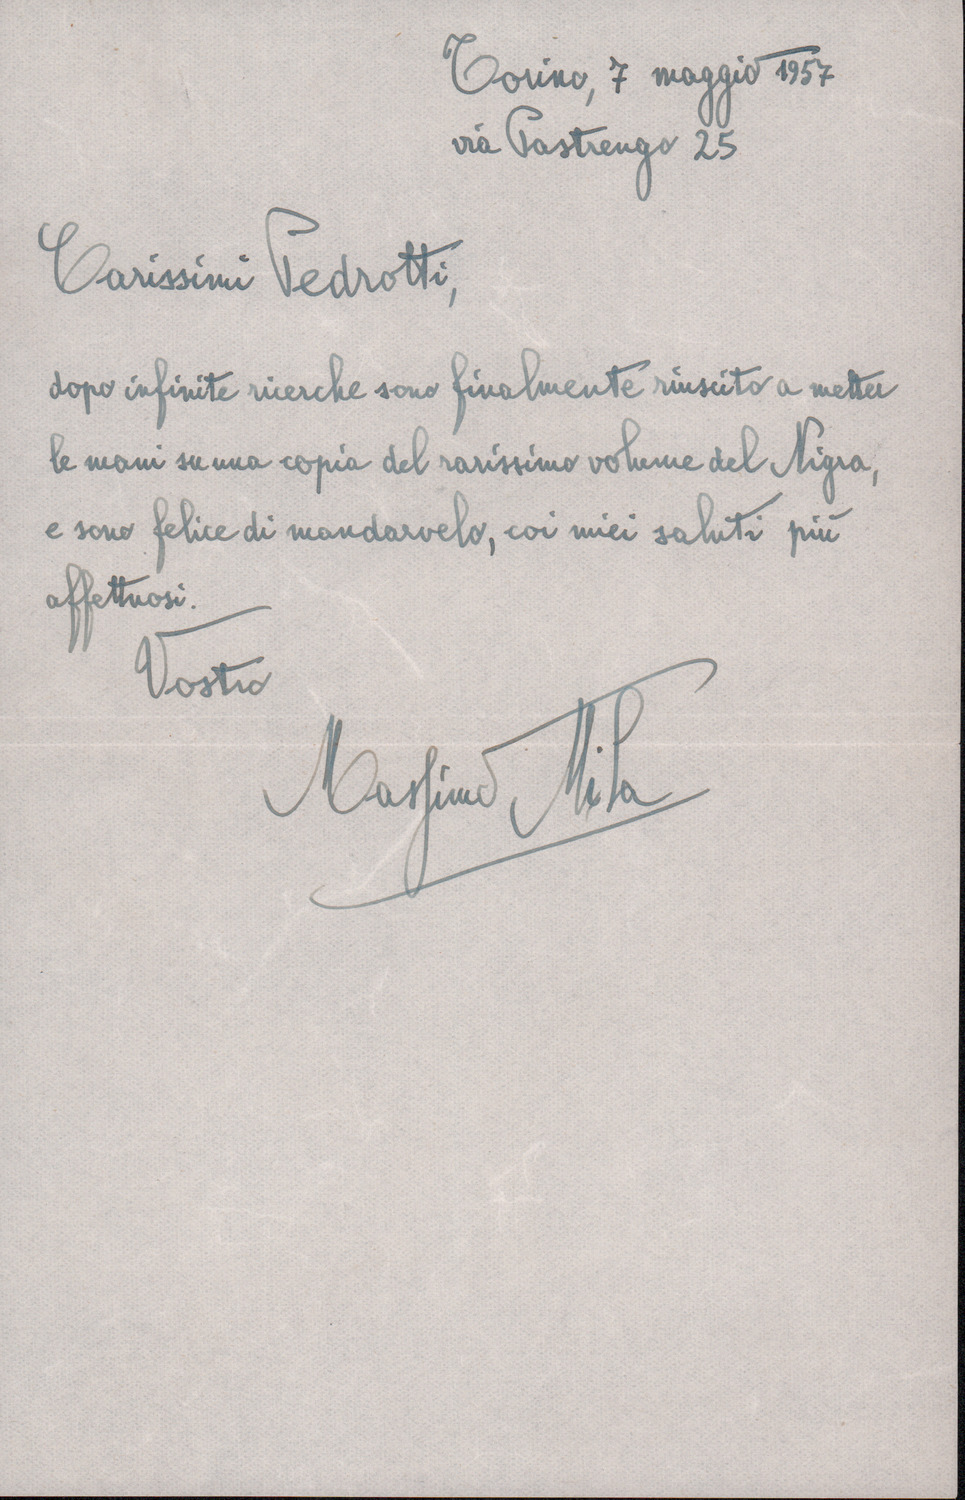 Torino, 7 maggio 1957
via Pastrengo 25
Carissimi Pedrotti,
dopo infinite ricerche sono finalmente riuscito a metter
le mani su una copia del rarissimo volume del Nigra,
e sono felice di mandarvelo, coi miei saluti più
affettuosi.
Vostro
Massimo Mila